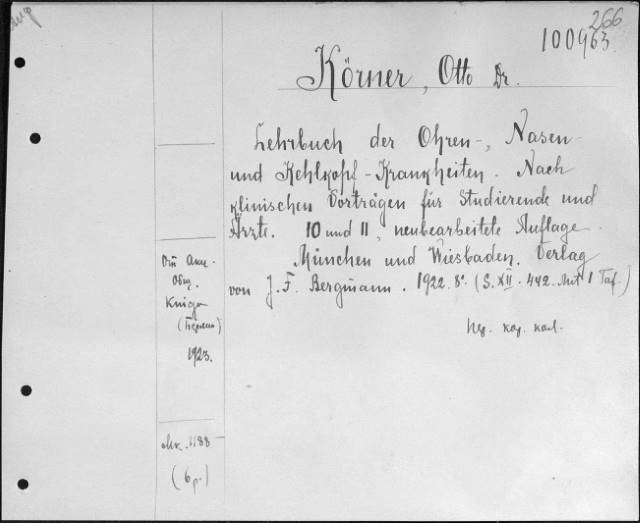 266
100963
Körner, Otto Dr.
Lehrbuch der Ohren-, Nasen-
und Kehlkopf-Krankheiten. Nach
klinischen Vorträgen für Studierende und
Ärzte. 10 und 11, neubearbeitete Auflage.
München und Wiesbaden. Verlag
von J. F. Bergmann. 1922. 8°. (S. XII. 442. Mit 1 Taf.)
Kniga
1923.
1188
(6 р.)